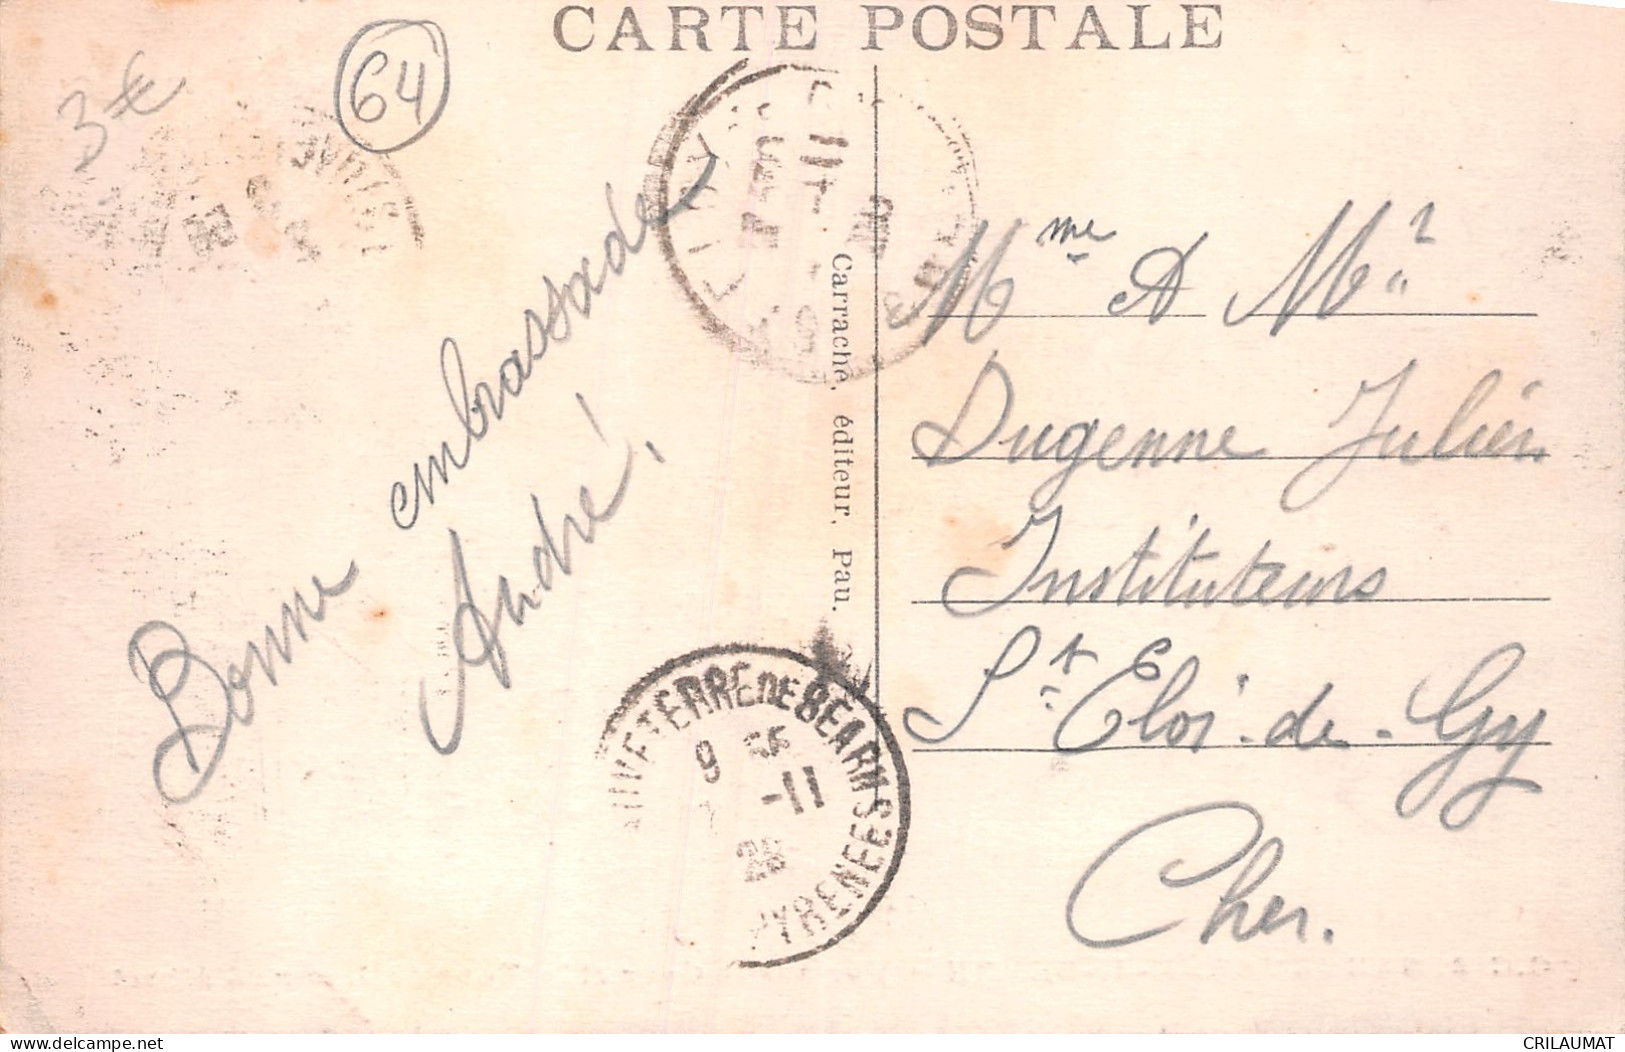 CARTE POSTALE
3€
64
Bonne embrassade
André.
Carrache, éditeur, Pau.
Mme & Mr
Dugenne Julien
Instituteurs
St Eloi-de-Gy
Cher.
SAUVETERRE DE BEARN
9
-11
28
PYRENEES
delcampe.net
CRILAUMAT